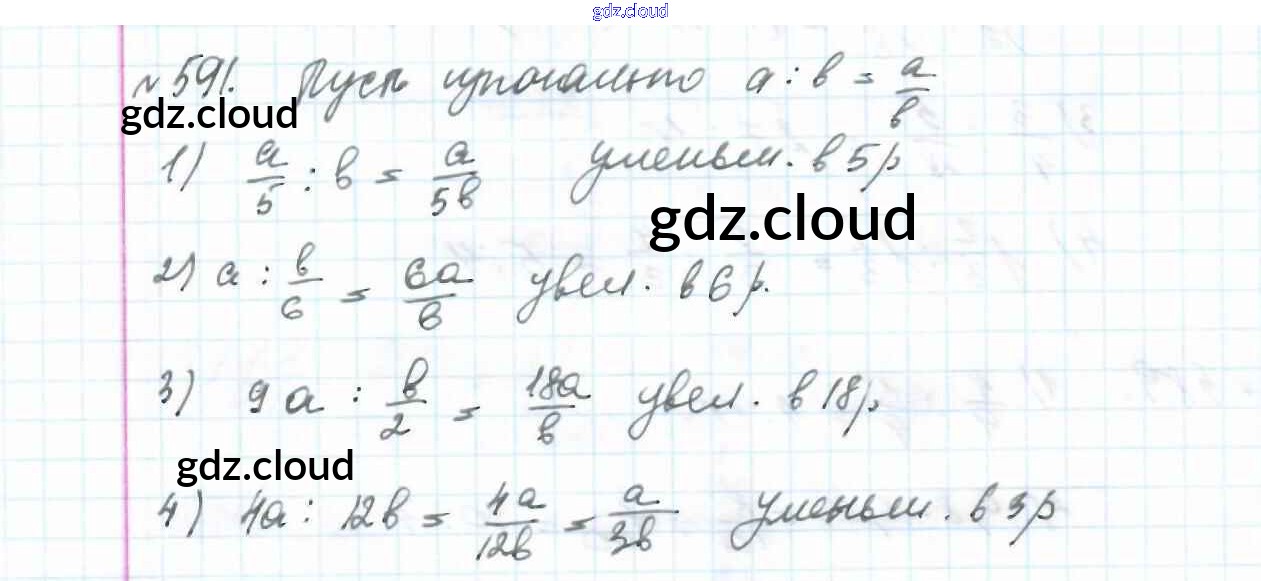 gdz.cloud
№591. Пусть изначально a : b = a/b
gdz.cloud
1) a/5 : b = a/5b уменьш. в 5 р
gdz.cloud
2) a : b/6 = 6a/b увел. в 6 р.
3) 9a : b/2 = 18a/b увел. в 18 р.
gdz.cloud
4) 4a : 12b = 4a/12b = a/3b уменьш. в 3 р